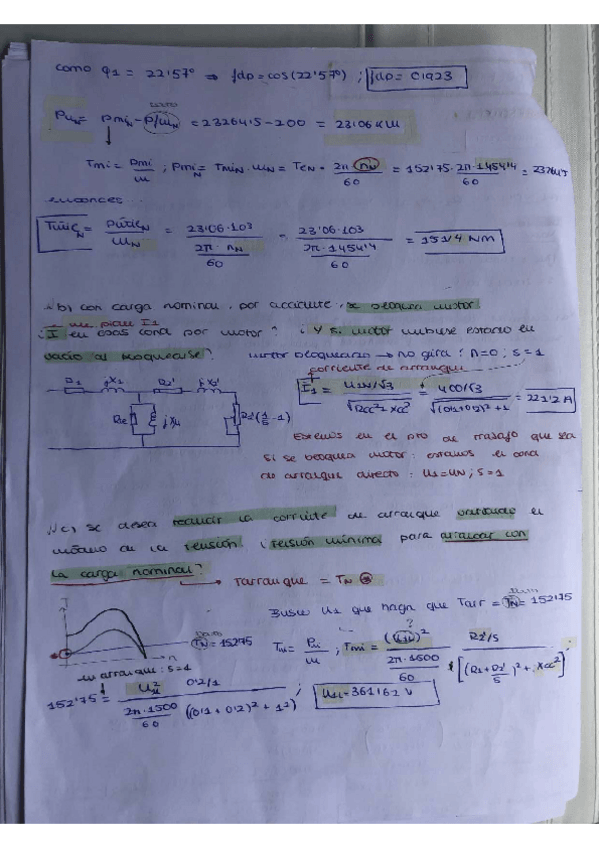 como φ1 = 22'57º ⇒ fdp = cos(22'57º) ; fdp = 0'923
PuN = PmiN - P/mN = 23264'5 - 200 = 23'06 KW
Tmi = Pmi/ω ; PmiN = TmiN · ωN = TeN · 2π · nN/60 = 152'75 · 2π · 1454'4/60 = 23264'5
entonces
TútilN = PútilN/ωN = 23'06·103/(2π · nN/60) = 23'06·103/(2π·1454'4/60) = 151'4 Nm
b) con carga nominal, por accidente, se bloquea motor
me piden I1
¿I en esas cond por motor? ¿Y si motor hubiese estado en
vacío al bloquearse? motor bloqueado → no gira : n=0 ; s=1
corriente de arranque
R1 jX1 R2' jX2'
RFe jXμ R2'(1/s - 1)
I1 = U1N/√3 / √(Rcc² + Xcc²) = 400/√3 / √((0'1+0'2)² + 1) = 221'2 A
Estemos en el pto de trabajo que sea
si se bloquea motor: estamos en cond
de arranque directo : U1=UN ; s=1
c) se desea reducir la corriente de arranque variando el
módulo de la tensión. ¿Tensión mínima para arrancar con
la carga nominal?
→ Tarranque = TN
Busco U1 que haga que Tarr = TN = 152'75
T
TN = 152'75
Tmi = Pmi/ω ; Tmi = (U1N)²/(2π·1500/60) · R2'/s / [(R1 + R2'/s)² + Xcc²] ;
?
en arranque : s=1
152'75 = U1²/(2π·1500/60) · 0'2/1 / ((0'1 + 0'2)² + 1²) ; U1 = 361'62 V